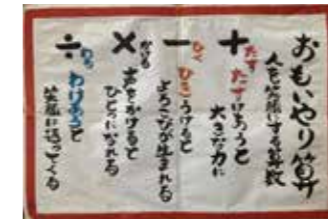 おもいやり算
人を笑顔にする算数
+ たす たすけあうと
大きな力に
− ひく ひきうけると
よろこびが生まれる
× かける 声をかけると
ひとつになれる
÷ わる わけあうと
笑顔に返ってくる